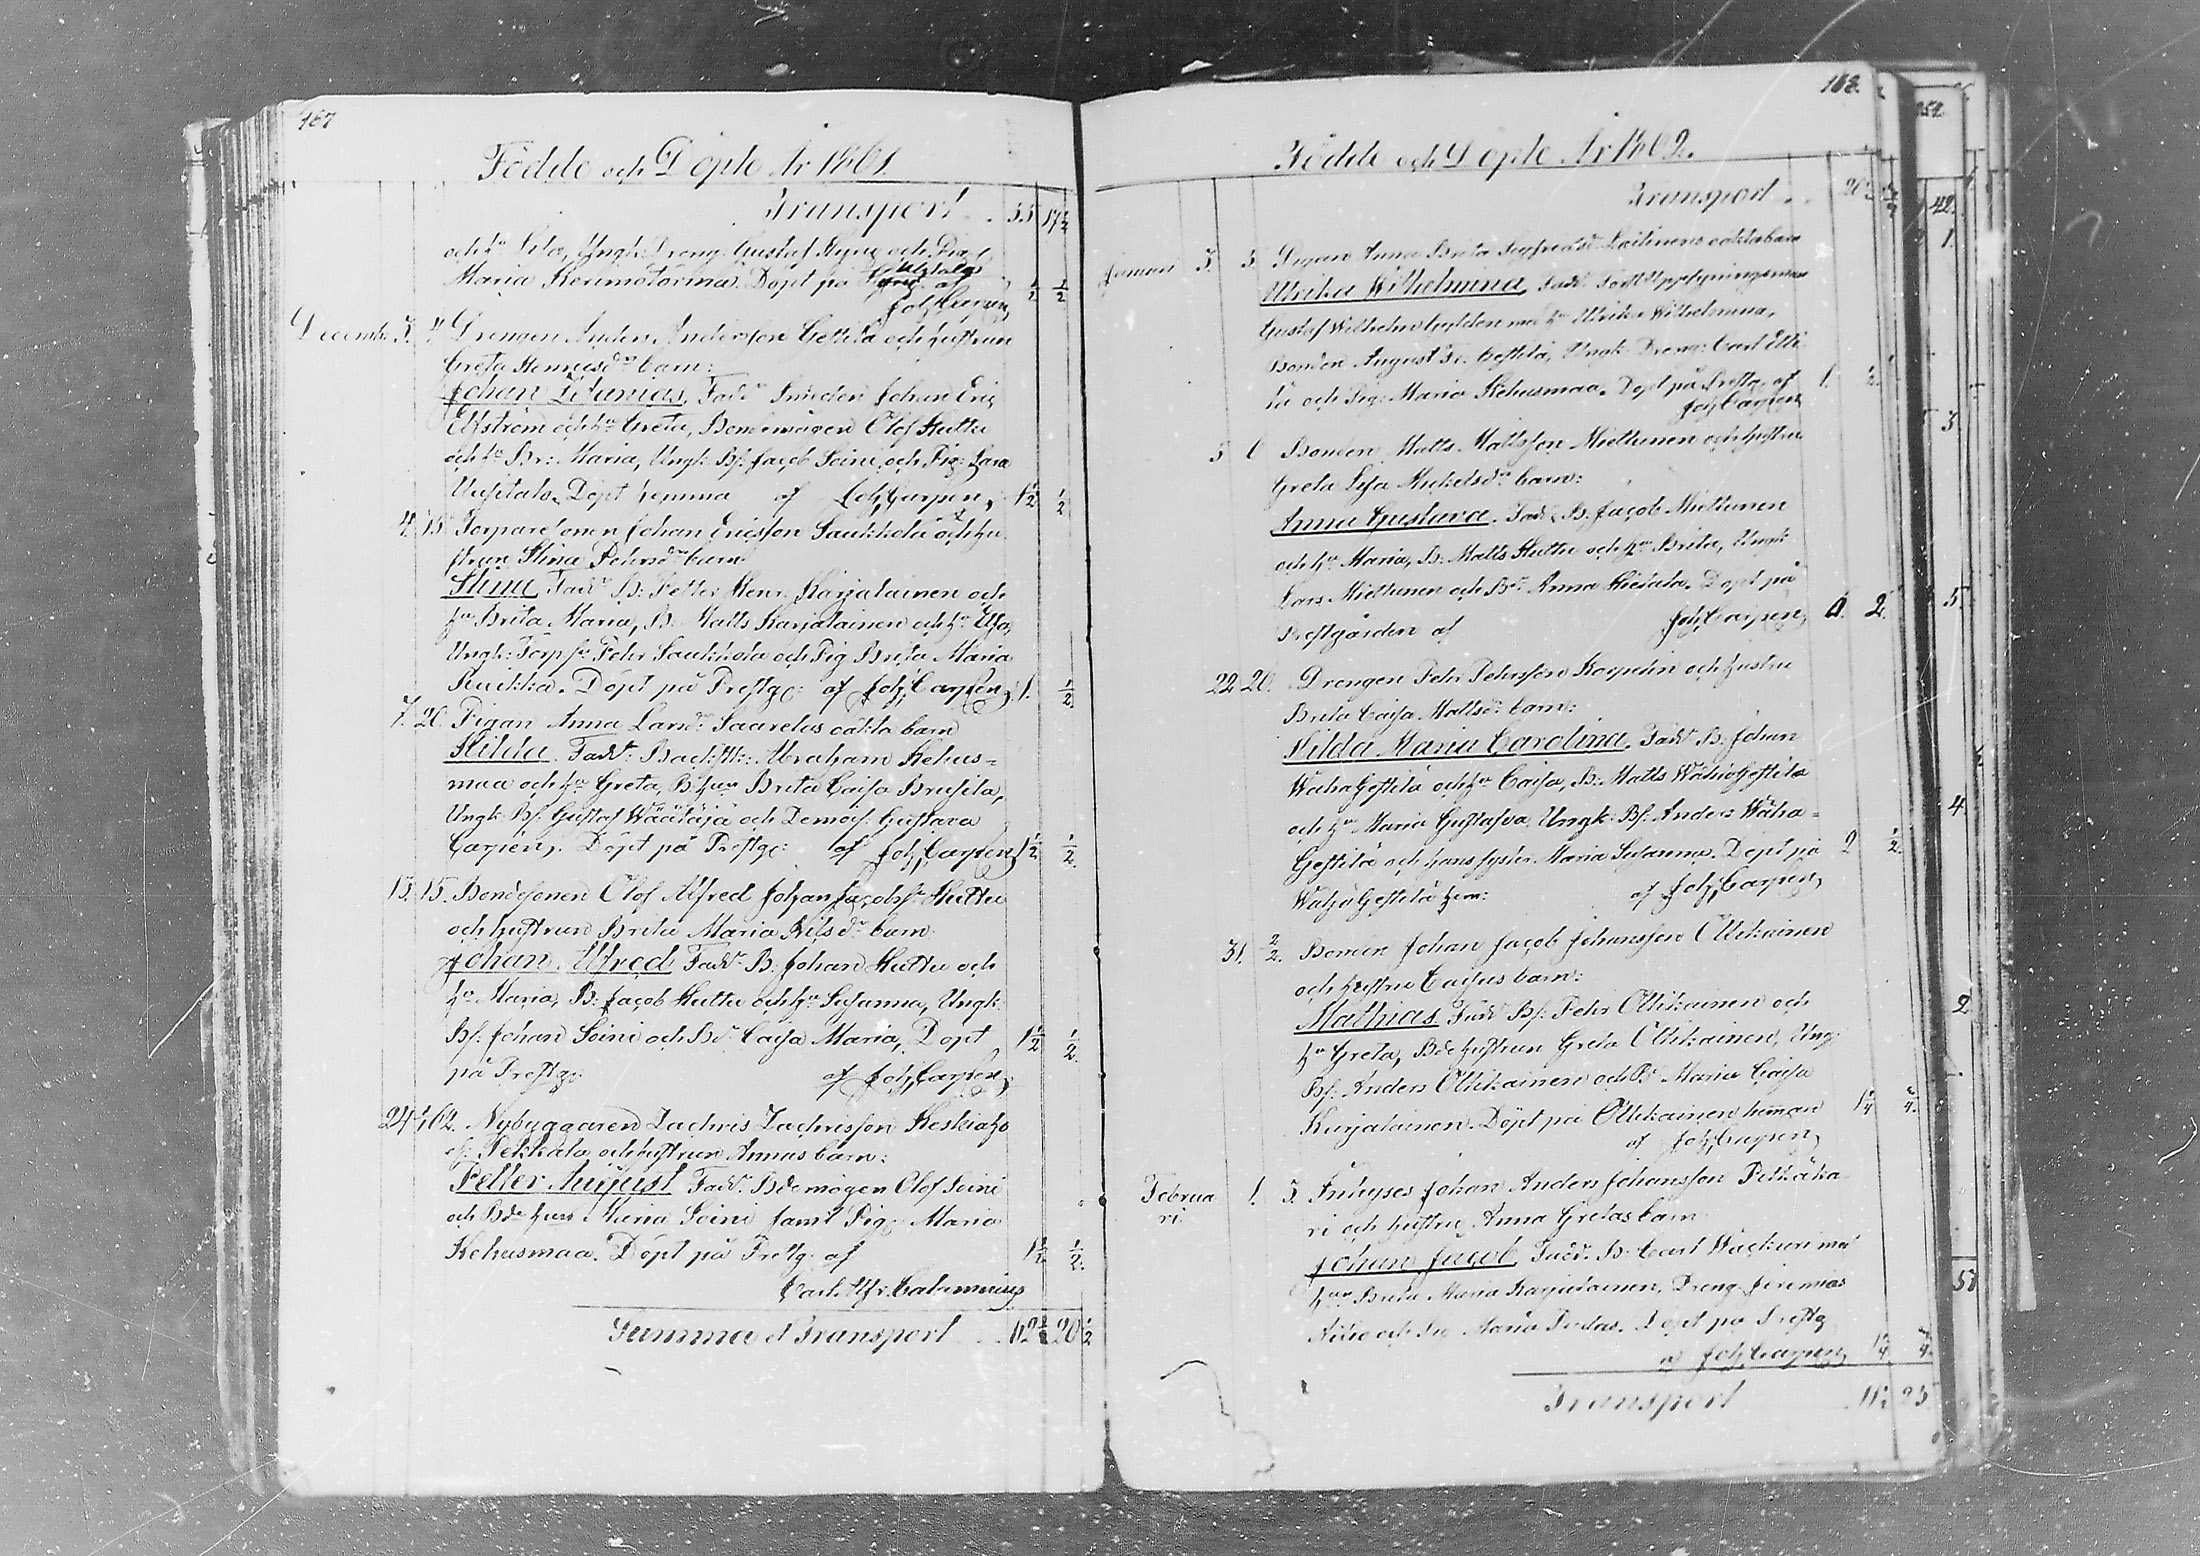 167
Födde och Döpte År 1861.
Transport . . 55 17½
och hu Lisa, Ungk: Dreng Gustaf och Pig:
Maria Kerimotorma. Döpt på af ½ ½
Joh. Carpen,
December 3. 7. Drengen Anders Andersson Gestilä och hustrun
Greta Henricsdr barn:
Johan Zidanias, Fadd: Smeden Johan Eric
Elfström och hu Greta, Bondemågen Olof Huttu
och hu Br: Maria, Ungk: Bs: Jacob Soini och Pig: Zara
Uusitalo. Döpt hemma af Joh. Carpen, 1½ ½
4. 15. Torparesonen Johan Ericsson Saukkola och hu-
strun Stina Pehrsdr barn
Stina Fadd: B: Petter Henr. Karjalainen och
hu Brita Maria, B: Matts Karjalainen och hu Lisa,
Ungk: Torps: Pehr Saukkola och Pig Brita Maria
Ruikka. Döpt på Prestg: af Joh. Carpen, 1. ½
7. 20. Pigan Anna Larsdr Saarelas oäkta barn
Hilda. Fadd: Backstk: Abraham Kehus-
maa och hu Greta, B:hu Brita Caisa Brusila,
Ungk: Bs: Gustaf Wäätäjä och Demois: Gustava
Carpen, Döpt på Prestg: af Joh. Carpen, 1½ ½
13. 15. Bondesonen Olof Alfred Johan Jacobs: Huttu
och hustrun Brita Maria Nilsdr barn
Johan Alfred Fadd: B: Johan Huttu och
hu Maria, B: Jacob Huttu och hu Susanna, Ungk:
Bs: Johan Soini och Bd: Caisa Maria, Döpt 1½ ½
på Prestg: af Joh. Carpen,
24 62. Nybyggaren Zachris Zachrisson Keskiaho
Pekkala och hustrun Annas barn:
Petter August Fadd: Bdemågen Olof Soini
och Bde hu Maria Soini samt Pig: Maria
Kehusmaa. Döpt på Prestg. af 1½ ½
Carl Alfr. Calamnius
Summa et Transport . . 62½ 20½
168.
Födde och Döpte År 1862.
Transport . . 20½
Januari 3. 5. Pigan Anna Brita Sigfredsdr Laitinens oäkta barn
Ulrika Wilhelmina, Fadd:
Gustaf Wilhelm med hu Ulrika Wilhelmina,
Bonden August Gestilä, Ungk: Dreng: Carl
och Pig: Maria Kehusmaa. Döpt på Prestg. af 1. ½
Joh. Carpen,
5 6 Bonden Matts Mattsson Miettunen och hustru
Greta Lisa Mickelsdr barn:
Anna Gustava. Fadd: B: Jacob Miettunen
och hu Maria, B: Matts Huttu och hu Brita, Ungk:
Lars Miettunen och Bd: Anna Hietala. Döpt på
Prestgården af Joh. Carpen, 2.
22 26. Drengen Pehr Pehrsson Karpelin och hustru
Brita Caisa Mattsdr barn:
Hilda Maria Carolina. Fadd: B: Johan
WähäGestilä och hu Caisa, B: Matts WähäGestilä
och hu Maria Gustafva, Ungk: Bs: Anders Wähä-
Gestilä och hans syster Maria Susanna. Döpt på 2 ½
WähäGestilä hem: af Joh. Carpen,
31. 2/2. Bonden Johan Jacob Johansson Ollikainen
och hustru Caisas barn:
Mathias Fadd: Bs: Pehr Ollikainen och
hu Greta, Bdehustrun Greta Ollikainen, Ung:
Bs: Anders Ollikainen och Bd Maria Caisa
Karjalainen. Döpt på Ollikainen hemman
af Joh. Carpen,
Februa-
ri 1. 3. Inhyses Johan Anders Johansson Pitkäka-
ri och hustru Anna Gretas barn
Johan Jacob, Fadd: B: Carl Wackuri med
hu Brita Maria Karjalainen, Dreng Jeremias
och Pig Maria Döpt på Prestg
af Joh. Carpen,
Transport 25